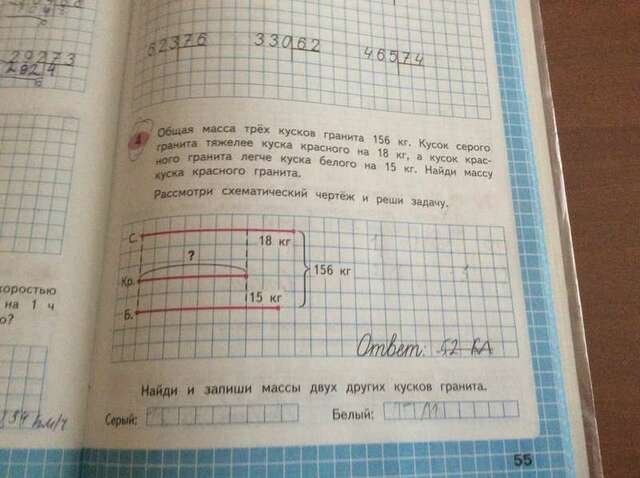 29273
2924
62376
33062
46574
4
Общая масса трёх кусков гранита 156 кг. Кусок серого
гранита тяжелее куска красного на 18 кг, а кусок крас-
ного гранита легче куска белого на 15 кг. Найди массу
куска красного гранита.
Рассмотри схематический чертёж и реши задачу.
С.
18 кг
?
Кр.
156 кг
15 кг
Б.
Ответ: 52
коростью
на 1 ч
о?
Найди и запиши массы двух других кусков гранита.
Серый:
Белый:
км/ч
55